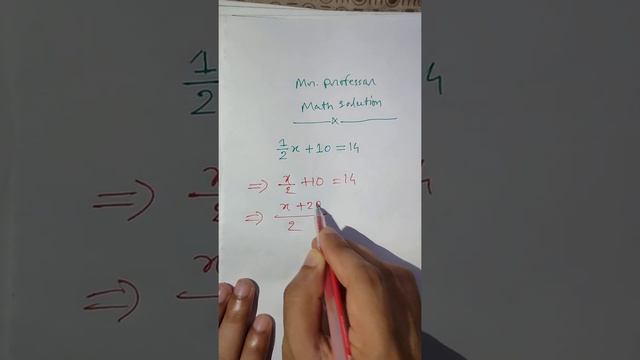 Mr. Professor
Math solution
x
1/2 x + 10 = 14
⇒ x/2 + 10 = 14
⇒ x + 20 / 2